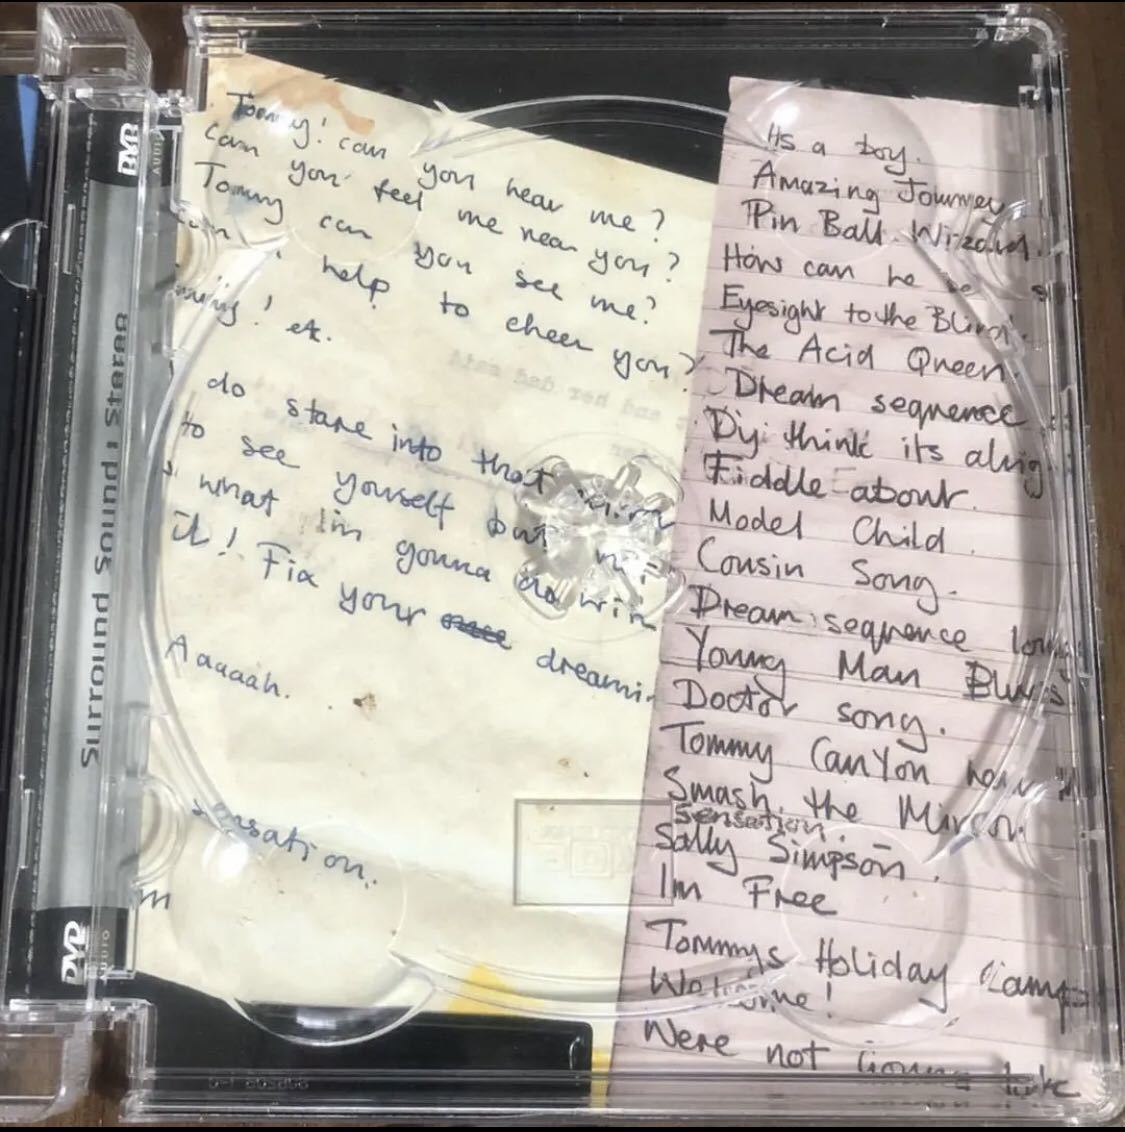 Tommy! can you hear me?
Can you feel me near you?
Tommy can you see me?
help to cheer you?
etc.
do stare into that
to see yourself but
what Im gonna do
it! Fix your dreami
Aaaaah.
sensation.
m
Its a boy.
Amazing Journey
Pin Ball Wizard.
How can he be s
Eyesight to the Blind.
The Acid Queen.
Dream sequence
D'y think its alrig
Fiddle about.
Model Child.
Cousin Song.
Dream sequence
Young Man Blues
Doctor song.
Tommy Can You hear
Smash the Mirror.
sensation.
Sally Simpson.
Im Free
Tommys Holiday Camp
Welcome!
Were not Gonna take
DVD
AUDIO
Surround Sound / Stereo
DVD
AUDIO